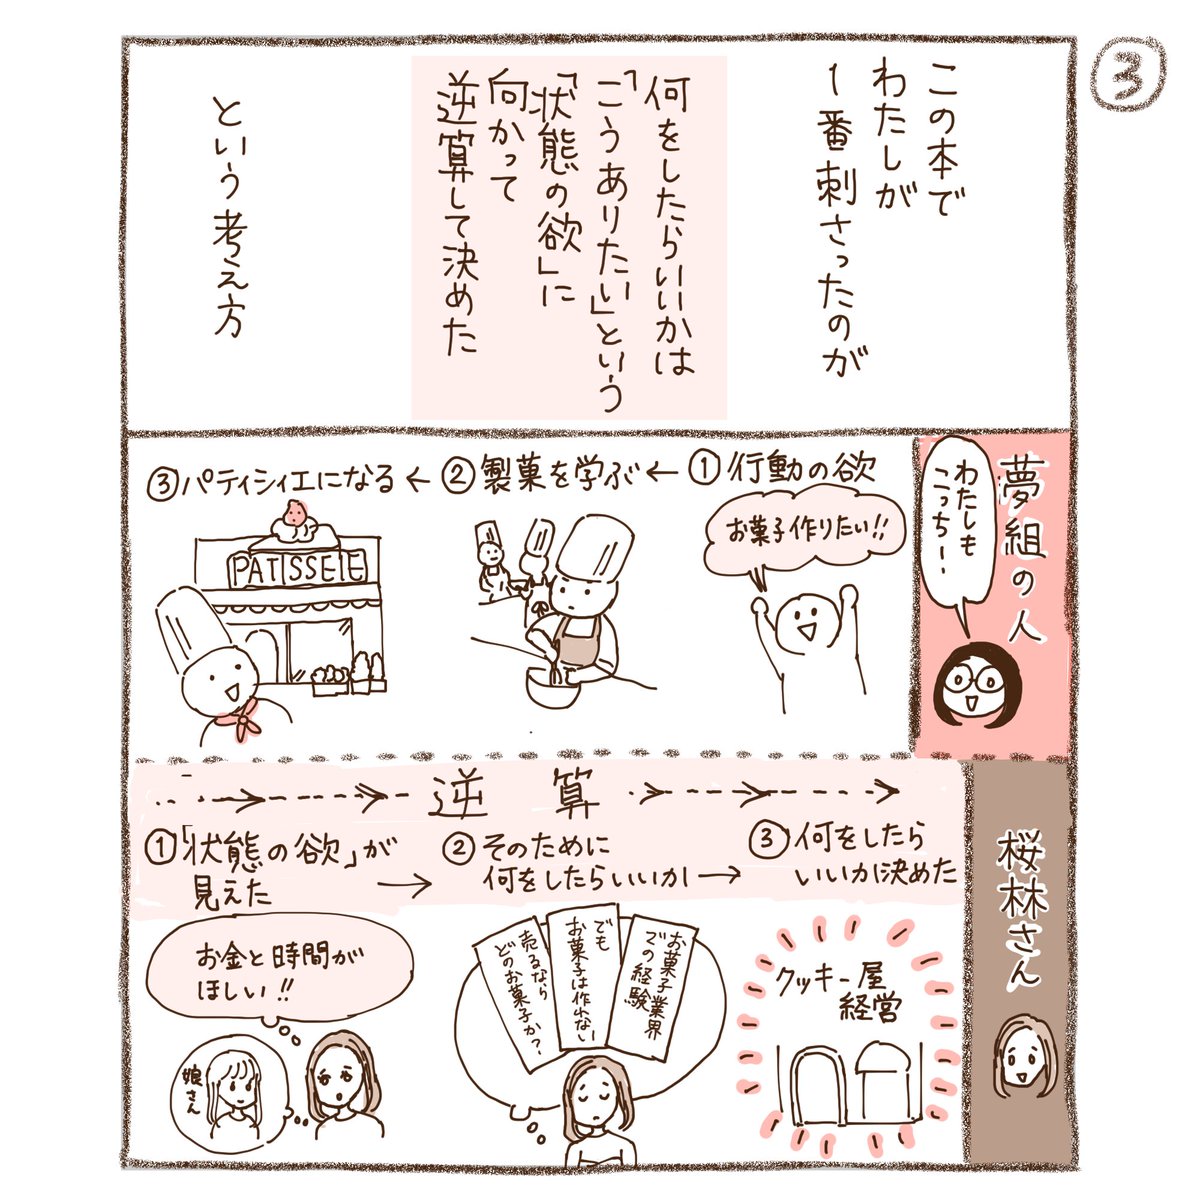 ③
この本で
わたしが
1番刺さったのが
何をしたらいいかは
「こうありたい」という
「状態の欲」に
向かって
逆算して決めた
という考え方
夢組の人
わたしも
こっちー
①行動の欲
お菓子作りたい!!
←②製菓を学ぶ
←③パティシィエになる
PATISSEIE
桜林さん
逆算
①「状態の欲」が
見えた
お金と時間が
ほしい!!
娘さん
→②そのために
何をしたらいいか
お菓子業界
での経験
でも
お菓子は作れない
売るなら
どのお菓子か?
→③何をしたら
いいか決めた
クッキー屋
経営